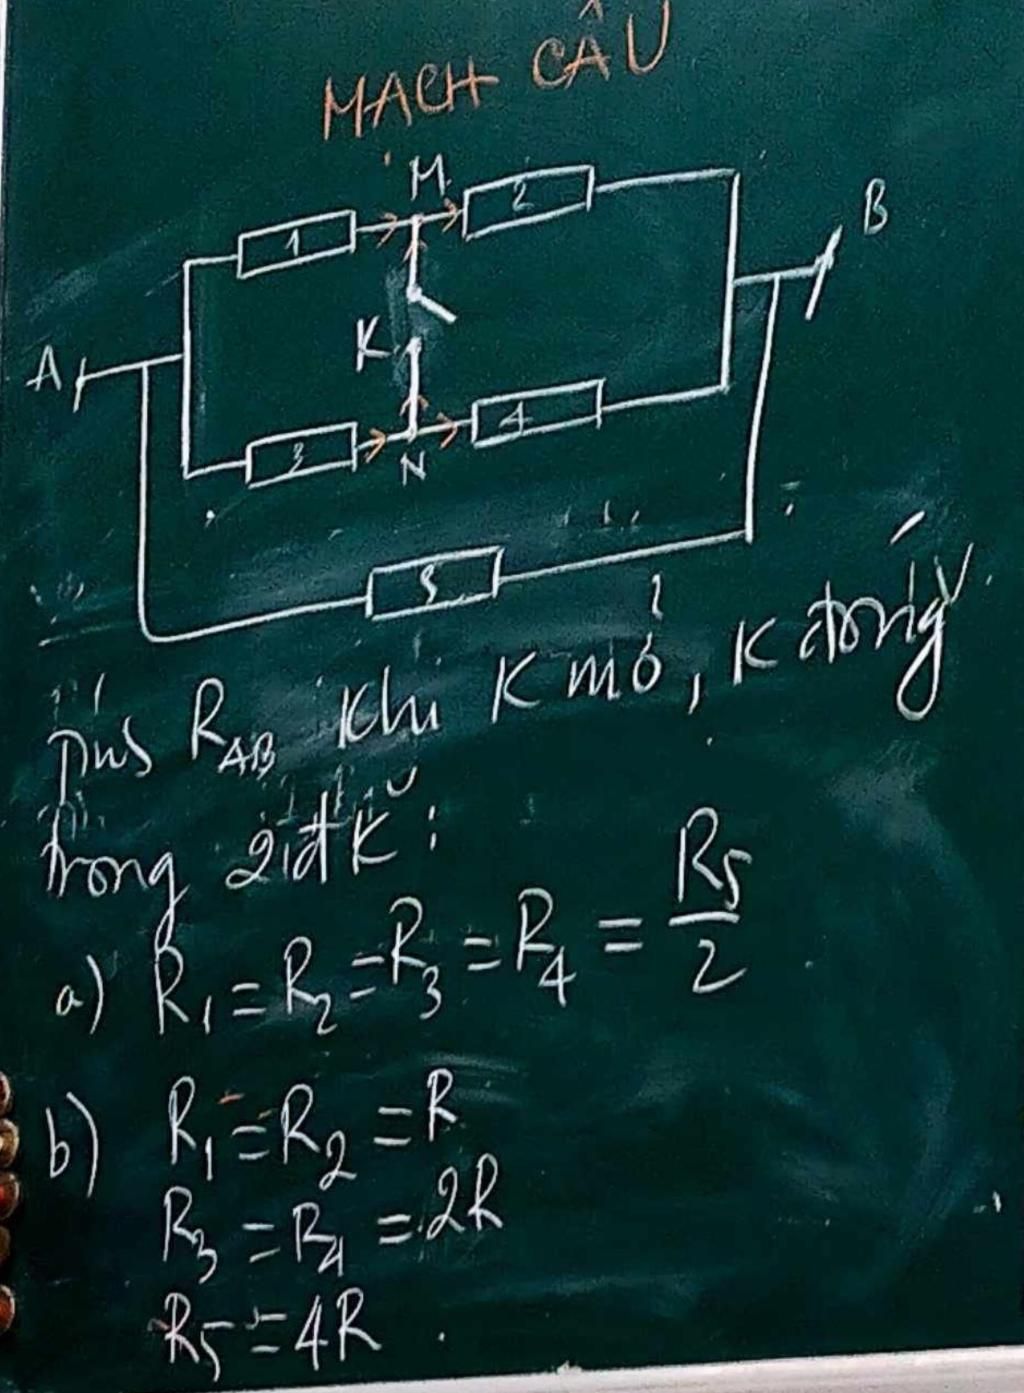 MẠCH CẦU
M
1
2
B
K
A
3
4
N
5
R_AB khi K mở, K đóng
trong 2 đk:
a) R₁ = R₂ = R₃ = R₄ = R₅/2
b) R₁ = R₂ = R
R₃ = R₄ = 2R
R₅ = 4R.